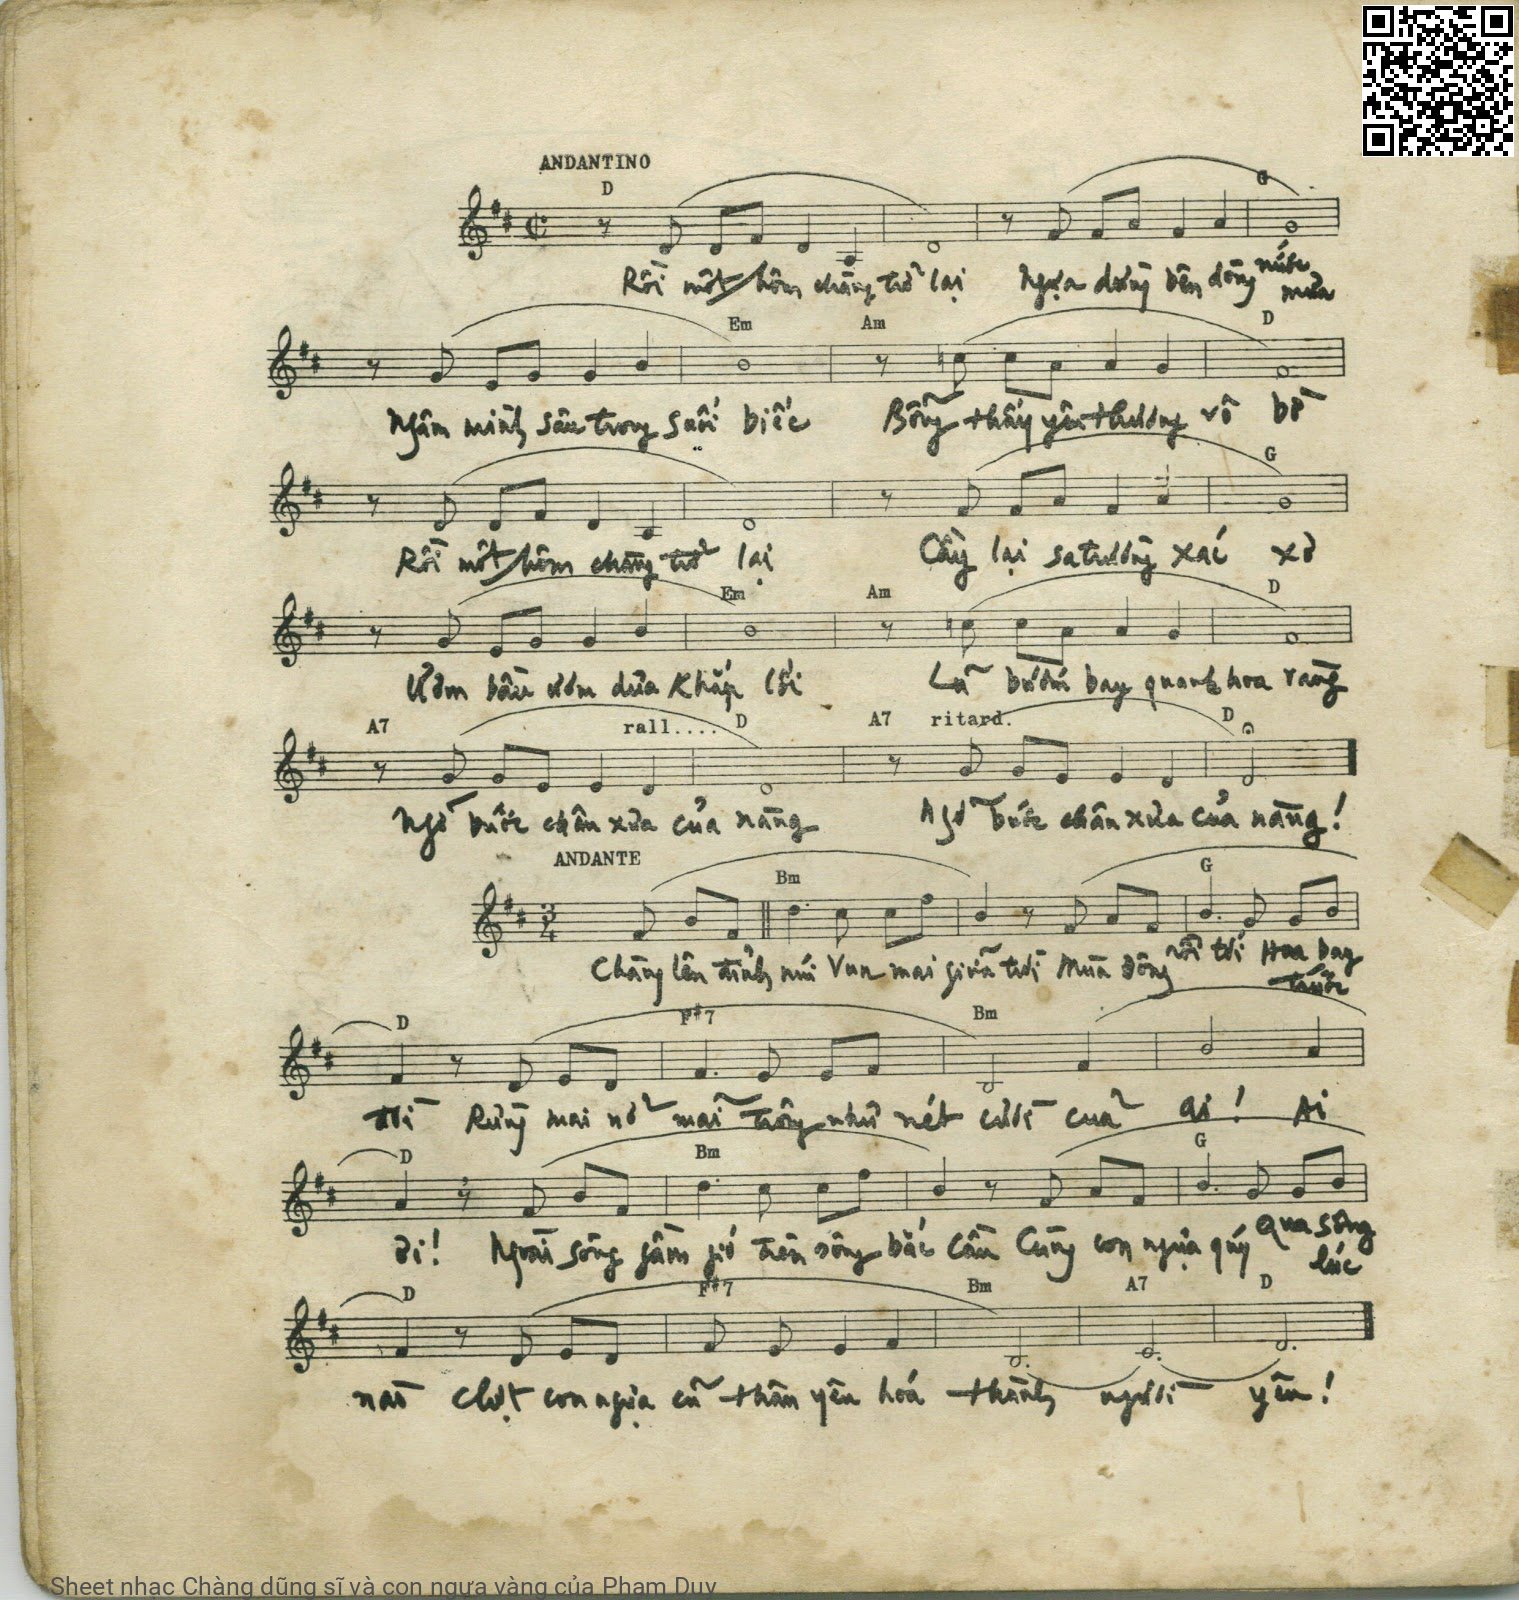 ANDANTINO
D G
Rồi một hôm chàng trở lại Ngựa dừng bên dòng nước
mùa
Em Am D
Ngâm mình sâu trong suối biếc Bỗng thấy yêu thương vô bờ
G
Rồi một hôm chàng trở lại Cây lại sa trường xác xơ
Em Am D
Ươm bầu ươm dưa khắp lối Lũ bướm bay quanh hoa vàng
A7 rall.... D A7 ritard. D
Ngỡ bước chân xưa của nàng Ngỡ bước chân xưa của nàng!
ANDANTE
Bm G
3 4
Chàng lên đỉnh núi Vun mai giữa trời Mùa đông rồi tới Hoa bay
trước
D F#7 Bm
đồi Rừng mai nở mãi Trông như nét cười của ai! Ai
D Bm G
ơi! Ngoài sông gầm gió Trên sông bắc cầu Cùng con ngựa quý Qua sông
lúc
D F#7 Bm A7 D
nào Chợt con ngựa cũ thân yêu hoá thành người yêu!
Sheet nhạc Chàng dũng sĩ và con ngựa vàng của Phạm Duy